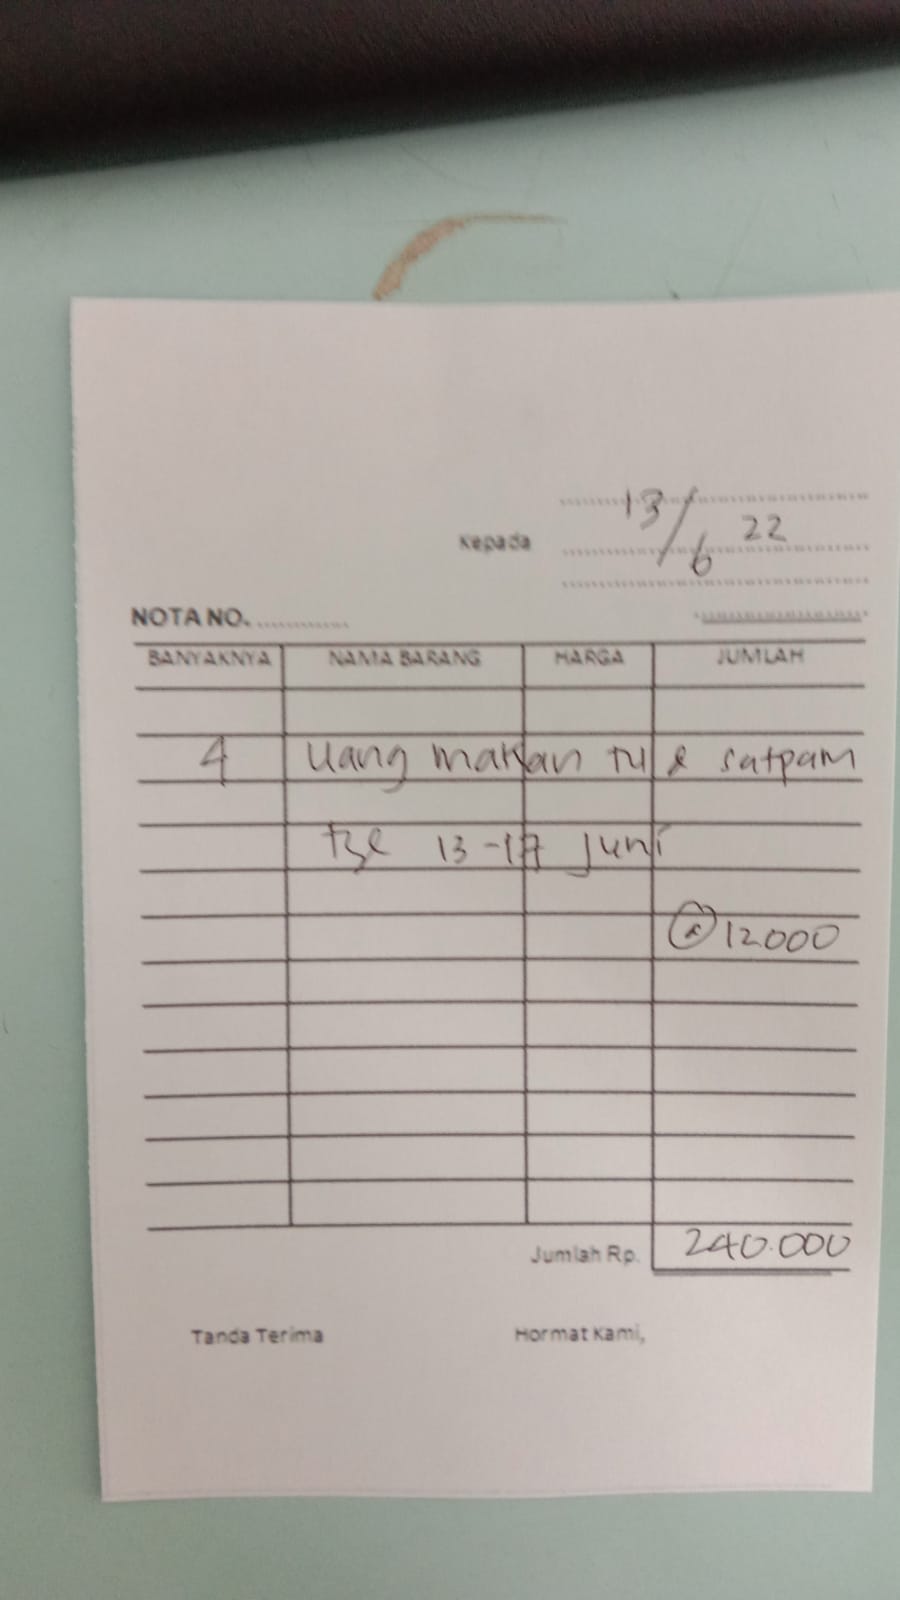 13/6 22
Kepada
NOTA NO. ............
BANYAKNYA NAMA BARANG HARGA JUMLAH
4 Uang makan TU & satpam
tgl 13-17 Juni
@ 12.000
Jumlah Rp. 240.000
Tanda Terima Hormat Kami,